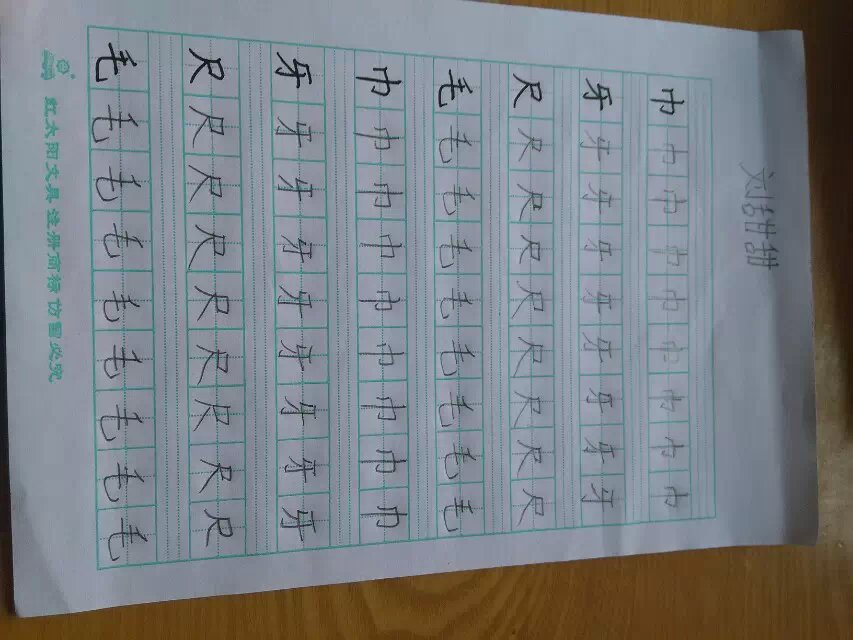 刘甜甜
巾巾巾巾巾巾巾巾巾
牙牙牙牙牙牙牙牙牙
尺尺尺尺尺尺尺尺尺
毛毛毛毛毛毛毛毛毛
巾巾巾巾巾巾巾巾巾
牙牙牙牙牙牙牙牙牙
尺尺尺尺尺尺尺尺尺
毛毛毛毛毛毛毛毛毛
红太阳文具 注册商标 仿冒必究